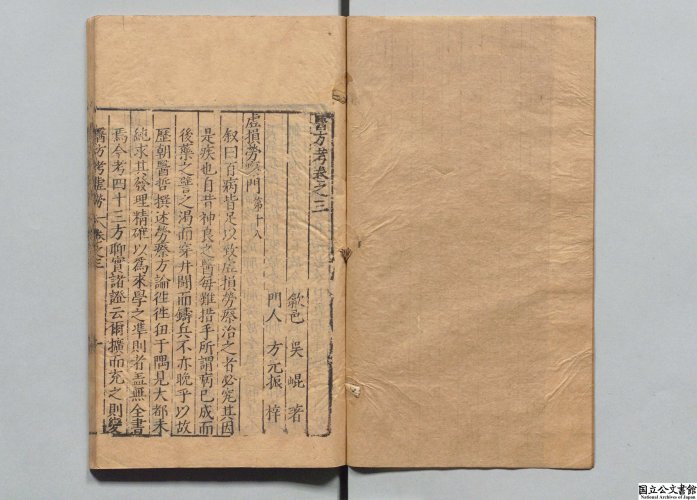 醫方考卷之三
歙邑 吳 崐 著
門人 方元振 梓
虛損勞瘵門第十八
叙曰百病皆足以致虛損勞瘵治之者必究其因
是疾也自昔神良之醫每難措手所謂病已成而
後藥之譬之渴而穿井鬪而鑄兵不亦晚乎以故
歷朝醫哲撰述勞瘵方論徃徃狃于隅見大都未
純求其發理精確以爲來學之準則者蓋無全書
焉今考四十三方聊實諸證云爾擴而充之則變
醫方考虛勞 卷之三
国立公文書館
National Archives of Japan